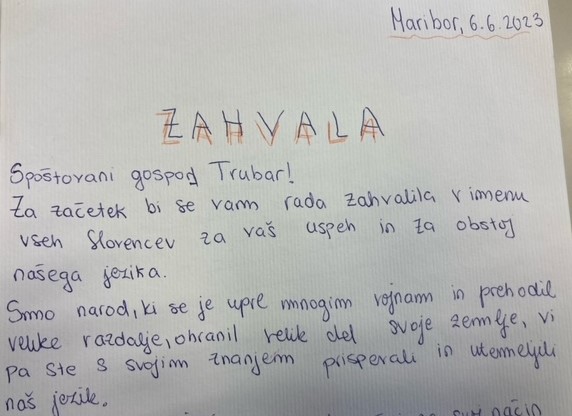 Maribor, 6.6.2023
ZAHVALA
Spoštovani gospod Trubar!
Za začetek bi se vam rada zahvalila v imenu
vseh Slovencev za vaš uspeh in za obstoj
našega jezika.
Smo narod, ki se je upre mnogim vojnam in prehodil
velike razdalje, ohranil velik del svoje zemlje, vi
pa ste s svojim znanjem prispevali in utemeljili
naš jezik.
način